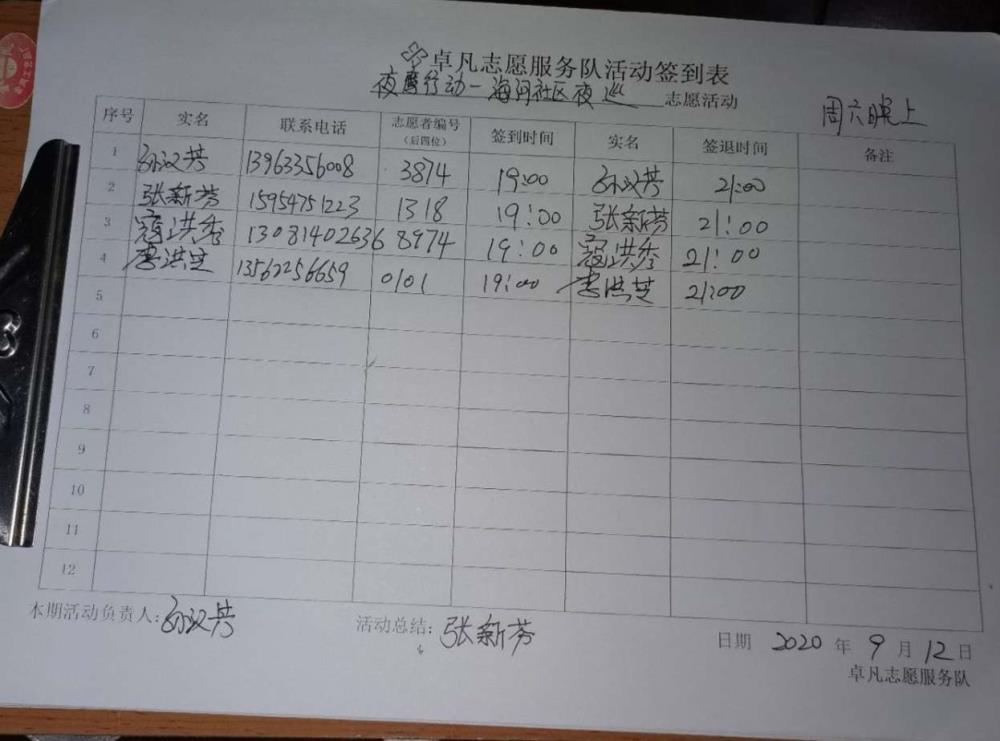 卓凡志愿服务队活动签到表
夜鹰行动-海河社区夜巡 志愿活动
周六晚上
序号 实名 联系电话 志愿者编号（后四位） 签到时间 实名 签退时间 备注
1 孙汉芳 13963356008 3874 19:00 孙汉芳 21:00
2 张新芬 15954751223 1318 19:00 张新芬 21:00
3 寇洪秀 13081402636 8974 19:00 寇洪秀 21:00
4 李洪芝 13562256659 0101 19:00 李洪芝 21:00
5
6
7
8
9
10
11
12
本期活动负责人：孙汉芳 活动总结：张新芬 日期 2020 年 9 月 12 日
卓凡志愿服务队